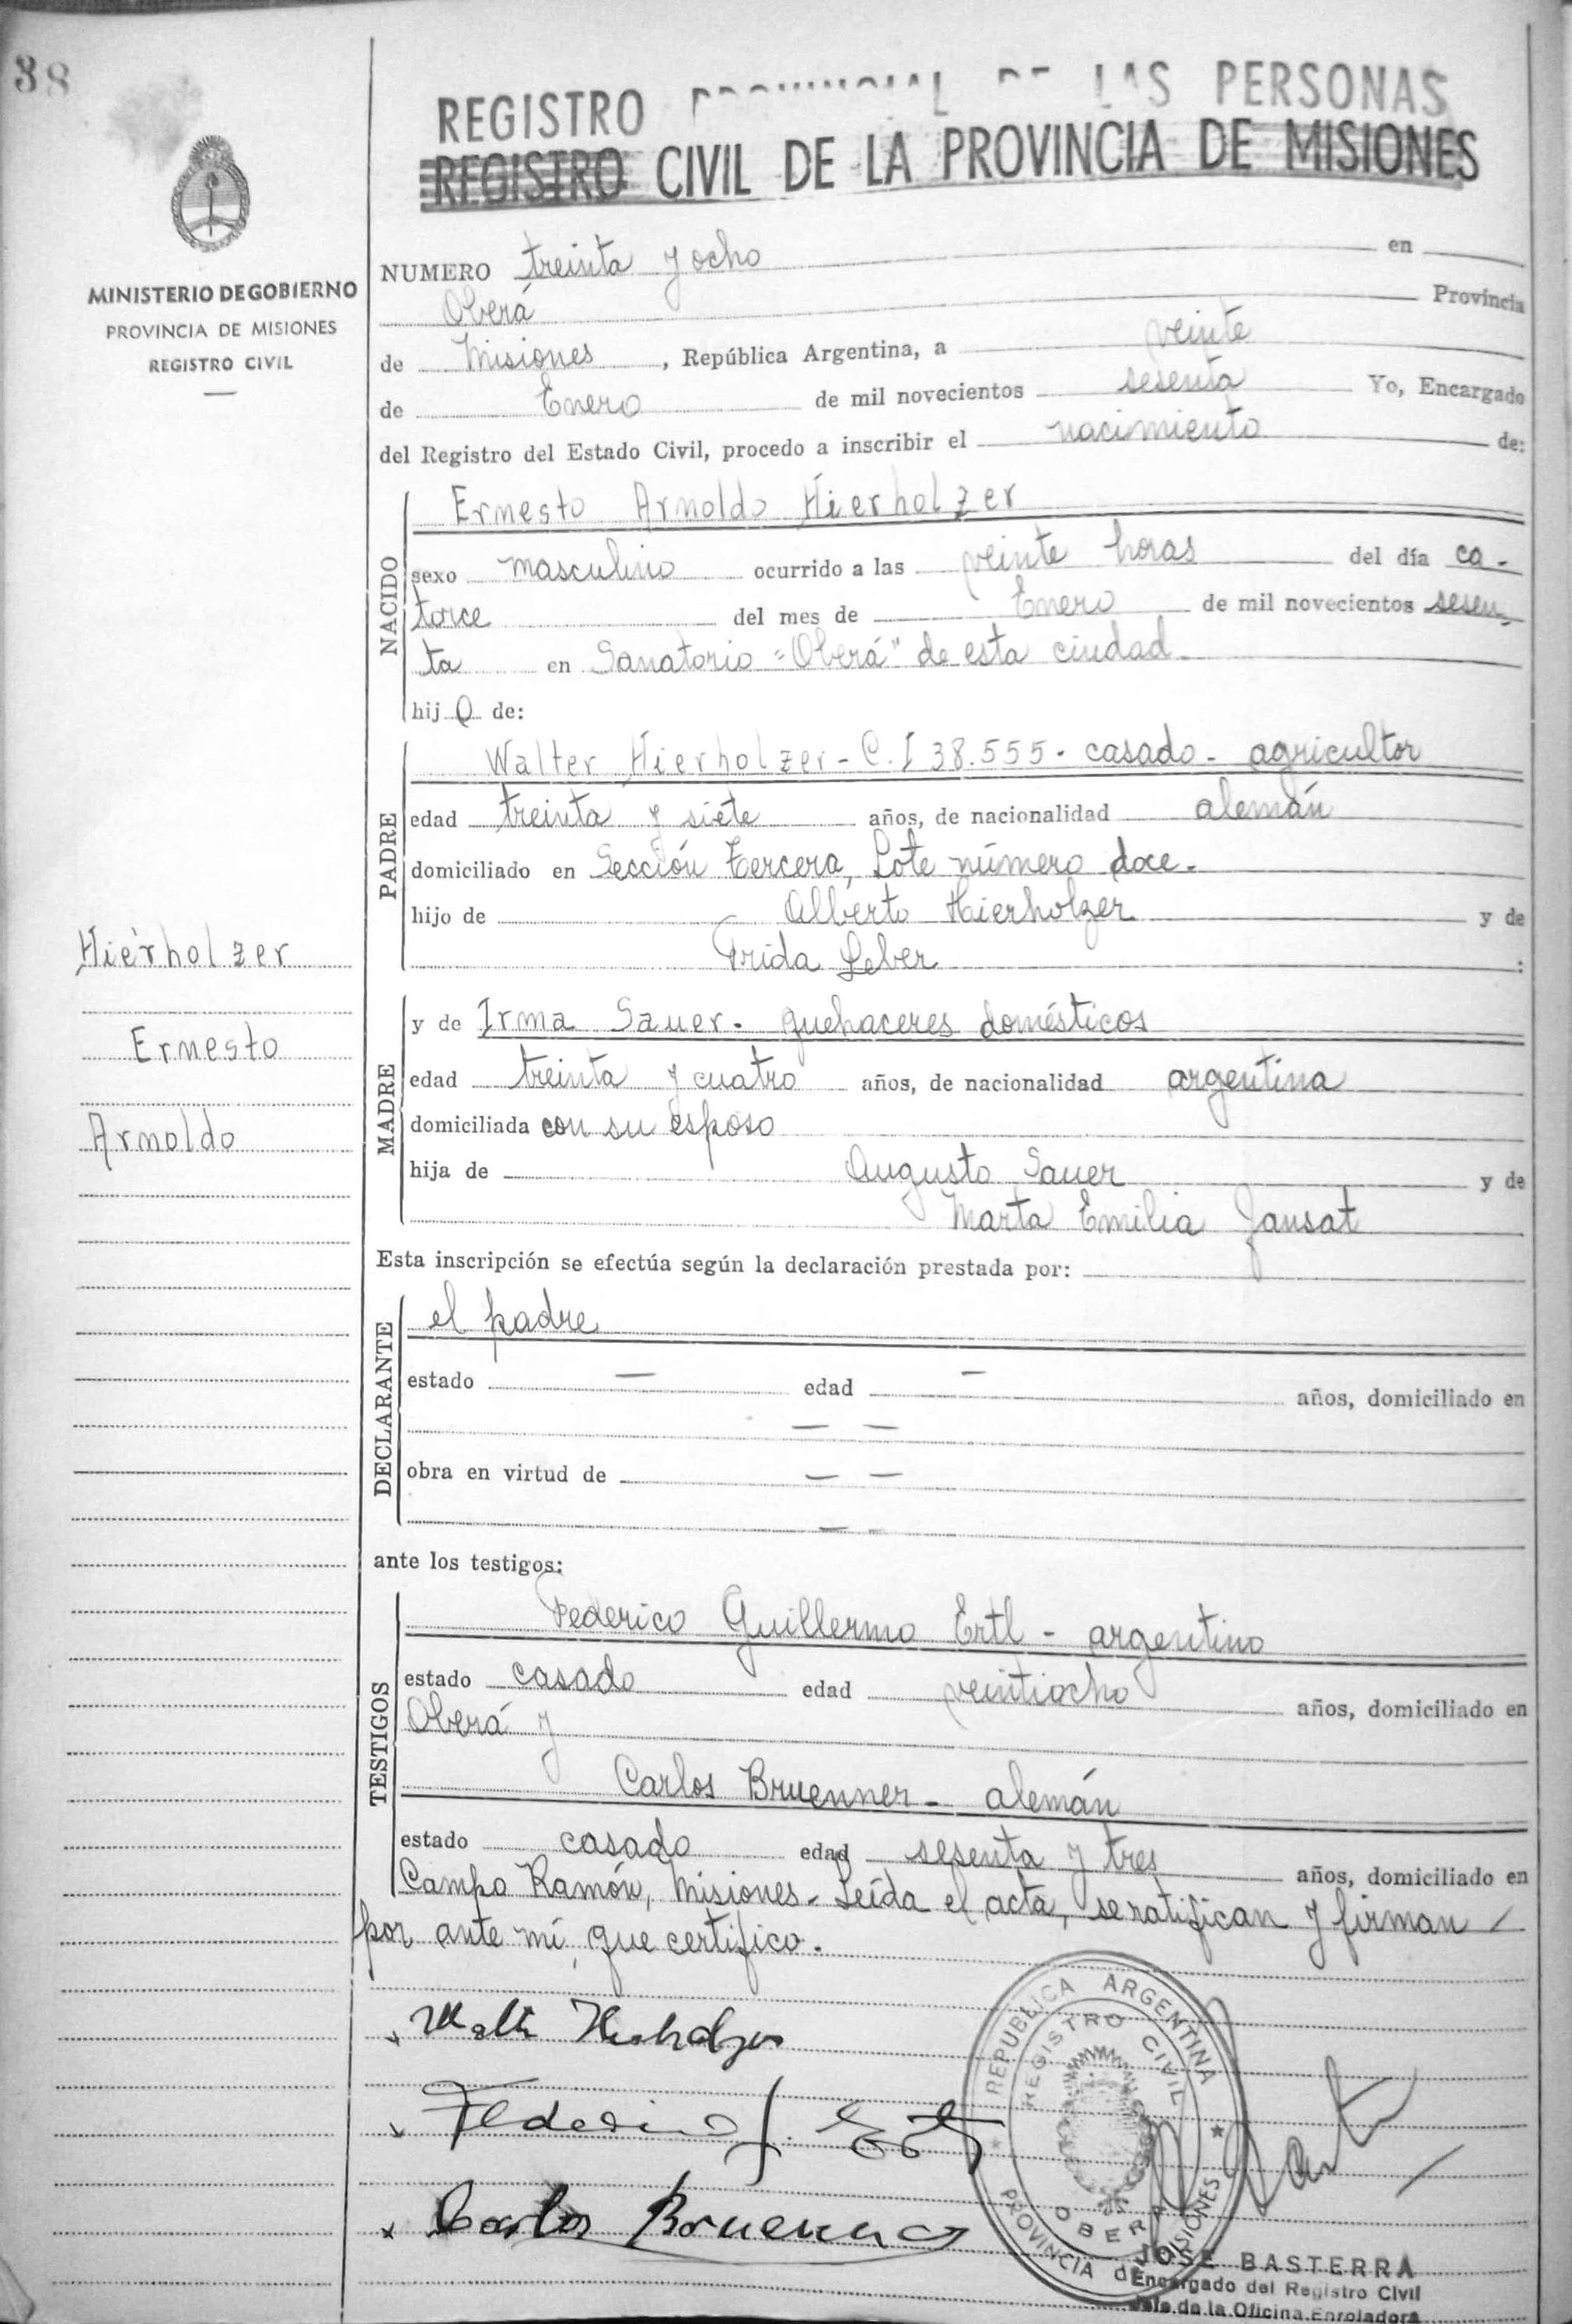 38
MINISTERIO DE GOBIERNO
PROVINCIA DE MISIONES
REGISTRO CIVIL
Hierholzer
Ernesto
Arnoldo
REGISTRO PROVINCIAL DE LAS PERSONAS
REGISTRO CIVIL DE LA PROVINCIA DE MISIONES
NUMERO treinta y ocho en
Oberá Provincia
de Misiones, República Argentina, a veinte
de Enero de mil novecientos sesenta Yo, Encargado
del Registro del Estado Civil, procedo a inscribir el nacimiento de:
NACIDO
Ernesto Arnoldo Hierholzer
sexo masculino ocurrido a las veinte horas del día ca-
torce del mes de Enero de mil novecientos sesen-
ta en Sanatorio "Oberá" de esta ciudad
hijo de:
PADRE
Walter Hierholzer - C.I 38.555 - casado - agricultor
edad treinta y siete años, de nacionalidad alemán
domiciliado en Sección Tercera, Lote número doce.
hijo de Alberto Hierholzer y de
Frida Leber :
MADRE
y de Irma Sauer - quehaceres domésticos
edad treinta y cuatro años, de nacionalidad argentina
domiciliada con su esposo
hija de Augusto Sauer y de
Marta Emilia Jansat
Esta inscripción se efectúa según la declaración prestada por:
DECLARANTE
el padre
estado — edad — años, domiciliado en
— —
obra en virtud de — —
— —
ante los testigos:
TESTIGOS
Federico Guillermo Ertl - argentino
estado casado edad veintiocho años, domiciliado en
Oberá y
Carlos Bruenner - alemán
estado casado edad sesenta y tres años, domiciliado en
Campo Ramón, Misiones - Leída el acta, se ratifican y firman
por ante mí, que certifico.
Walter Hierholzer
Federico
Carlos Bruenner
REPUBLICA ARGENTINA
REGISTRO CIVIL
OBERA
PROVINCIA DE MISIONES
JOSE BASTERRA
Encargado del Registro Civil
Jefe de la Oficina Enroladora